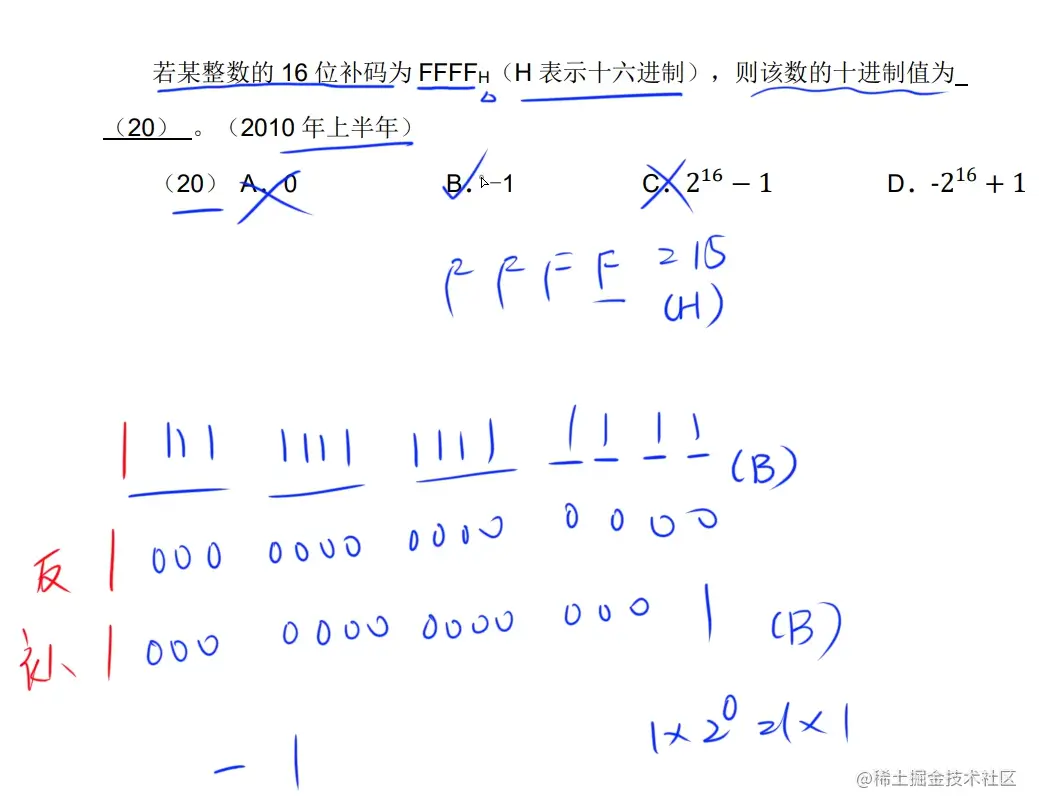 若某整数的 16 位补码为 FFFFH（H 表示十六进制），则该数的十进制值为
（20） 。（2010 年上半年）
（20） A．0 B．-1 C．2^16 − 1 D．-2^16 + 1
F F F F = 15
(H)
1 111 1111 1111 1111 (B)
反 1 000 0000 0000 0000
补 1 000 0000 0000 0001 (B)
1×2^0 =1×1
- 1
@稀土掘金技术社区